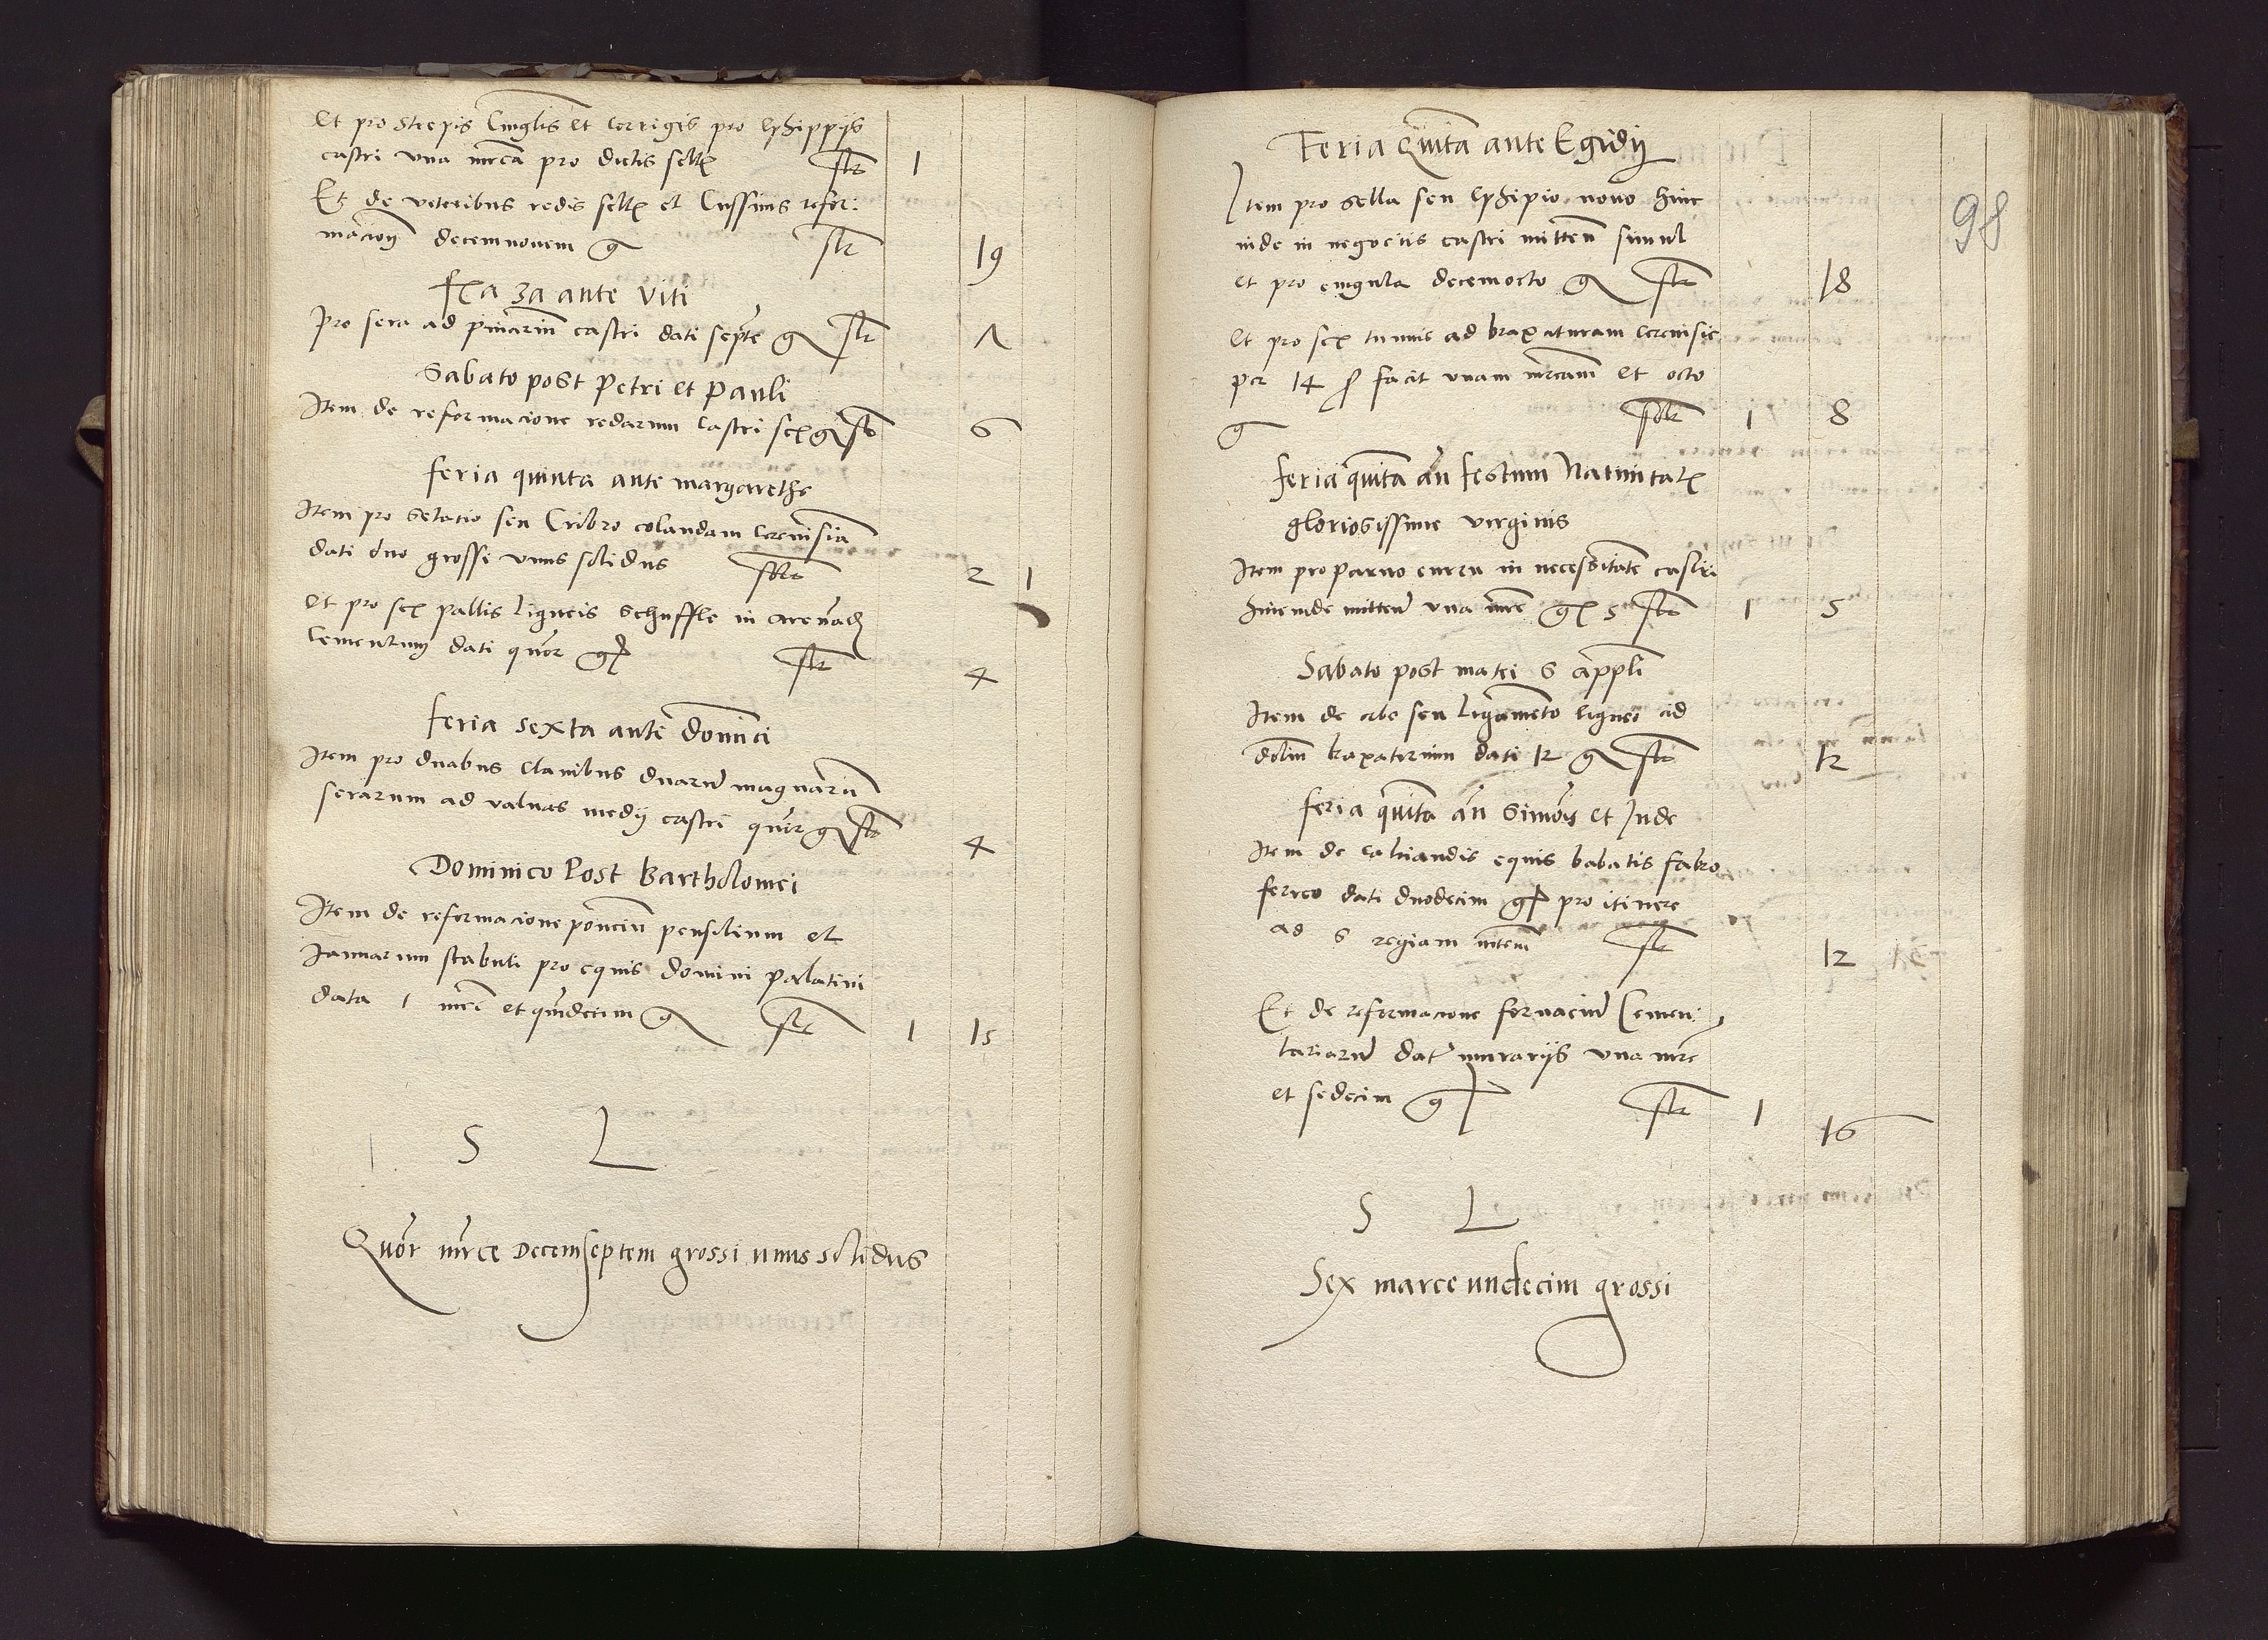 Et pro strepis Cinglis et Corrigis pro Ephippijs
castri una mrca pro dictis sell 1
Et de veteribus redis sell et Cussinis refor:
macioni decemnovem g 19
fra 3a ante Viti
Pro sera ad pincariu castri dati septe g 7
Sabato post Petri et Pauli
Item de reformacione redarum Castri sex g 6
feria quinta ante margarethe
Item pro setacio seu Cribro colandam Cerevisia
dati duo grosse unus solidus 2 1
Et pro sex pallis ligneis Schuffle in arenad
Cementum dati quor g 4
feria sexta ante dominici
Item pro duabus Clavibus duaru magnaru
serarum ad valvas medij castri quor g 4
Dominico Post Bartholomei
Item de reformacione ponciu pensilium et
Januarum stabuli pro equis domini Palatini
data 1 mrc et quindecim g 1 15
S L
Quor mrce Decemseptem grossi unus solidus
98
Feria Quinta ante Egidij
Item pro sella seu Ephipio novo hinc
inde in negociis castri mitten simul
et pro cingula decemocto g 18
Et pro sex tunnis ad braxaturam Cerevisie
per 14 s facit unam mrcam et octo
g 1 8
feria quinta an festum Nativitat
gloriosissime virginis
Item pro parvo curru in necessitate castri
hincinde mitten una mrc g 5 1 5
Sabato post matei S appli
Item de orbe seu Ligamento ligneo ad
doliu braxatorium dati 12 g 12
feria quinta an Simonis et Jude
Item de calciandis equis babatis fabro
ferreo dati duodecim g pro itinere
ad S regiam mtem 12
Et de reformacione fornaciu Cemen:
tariaru dat murarijs una mrc
et sedecim g 1 16
S L
Sex marce undecim grossi